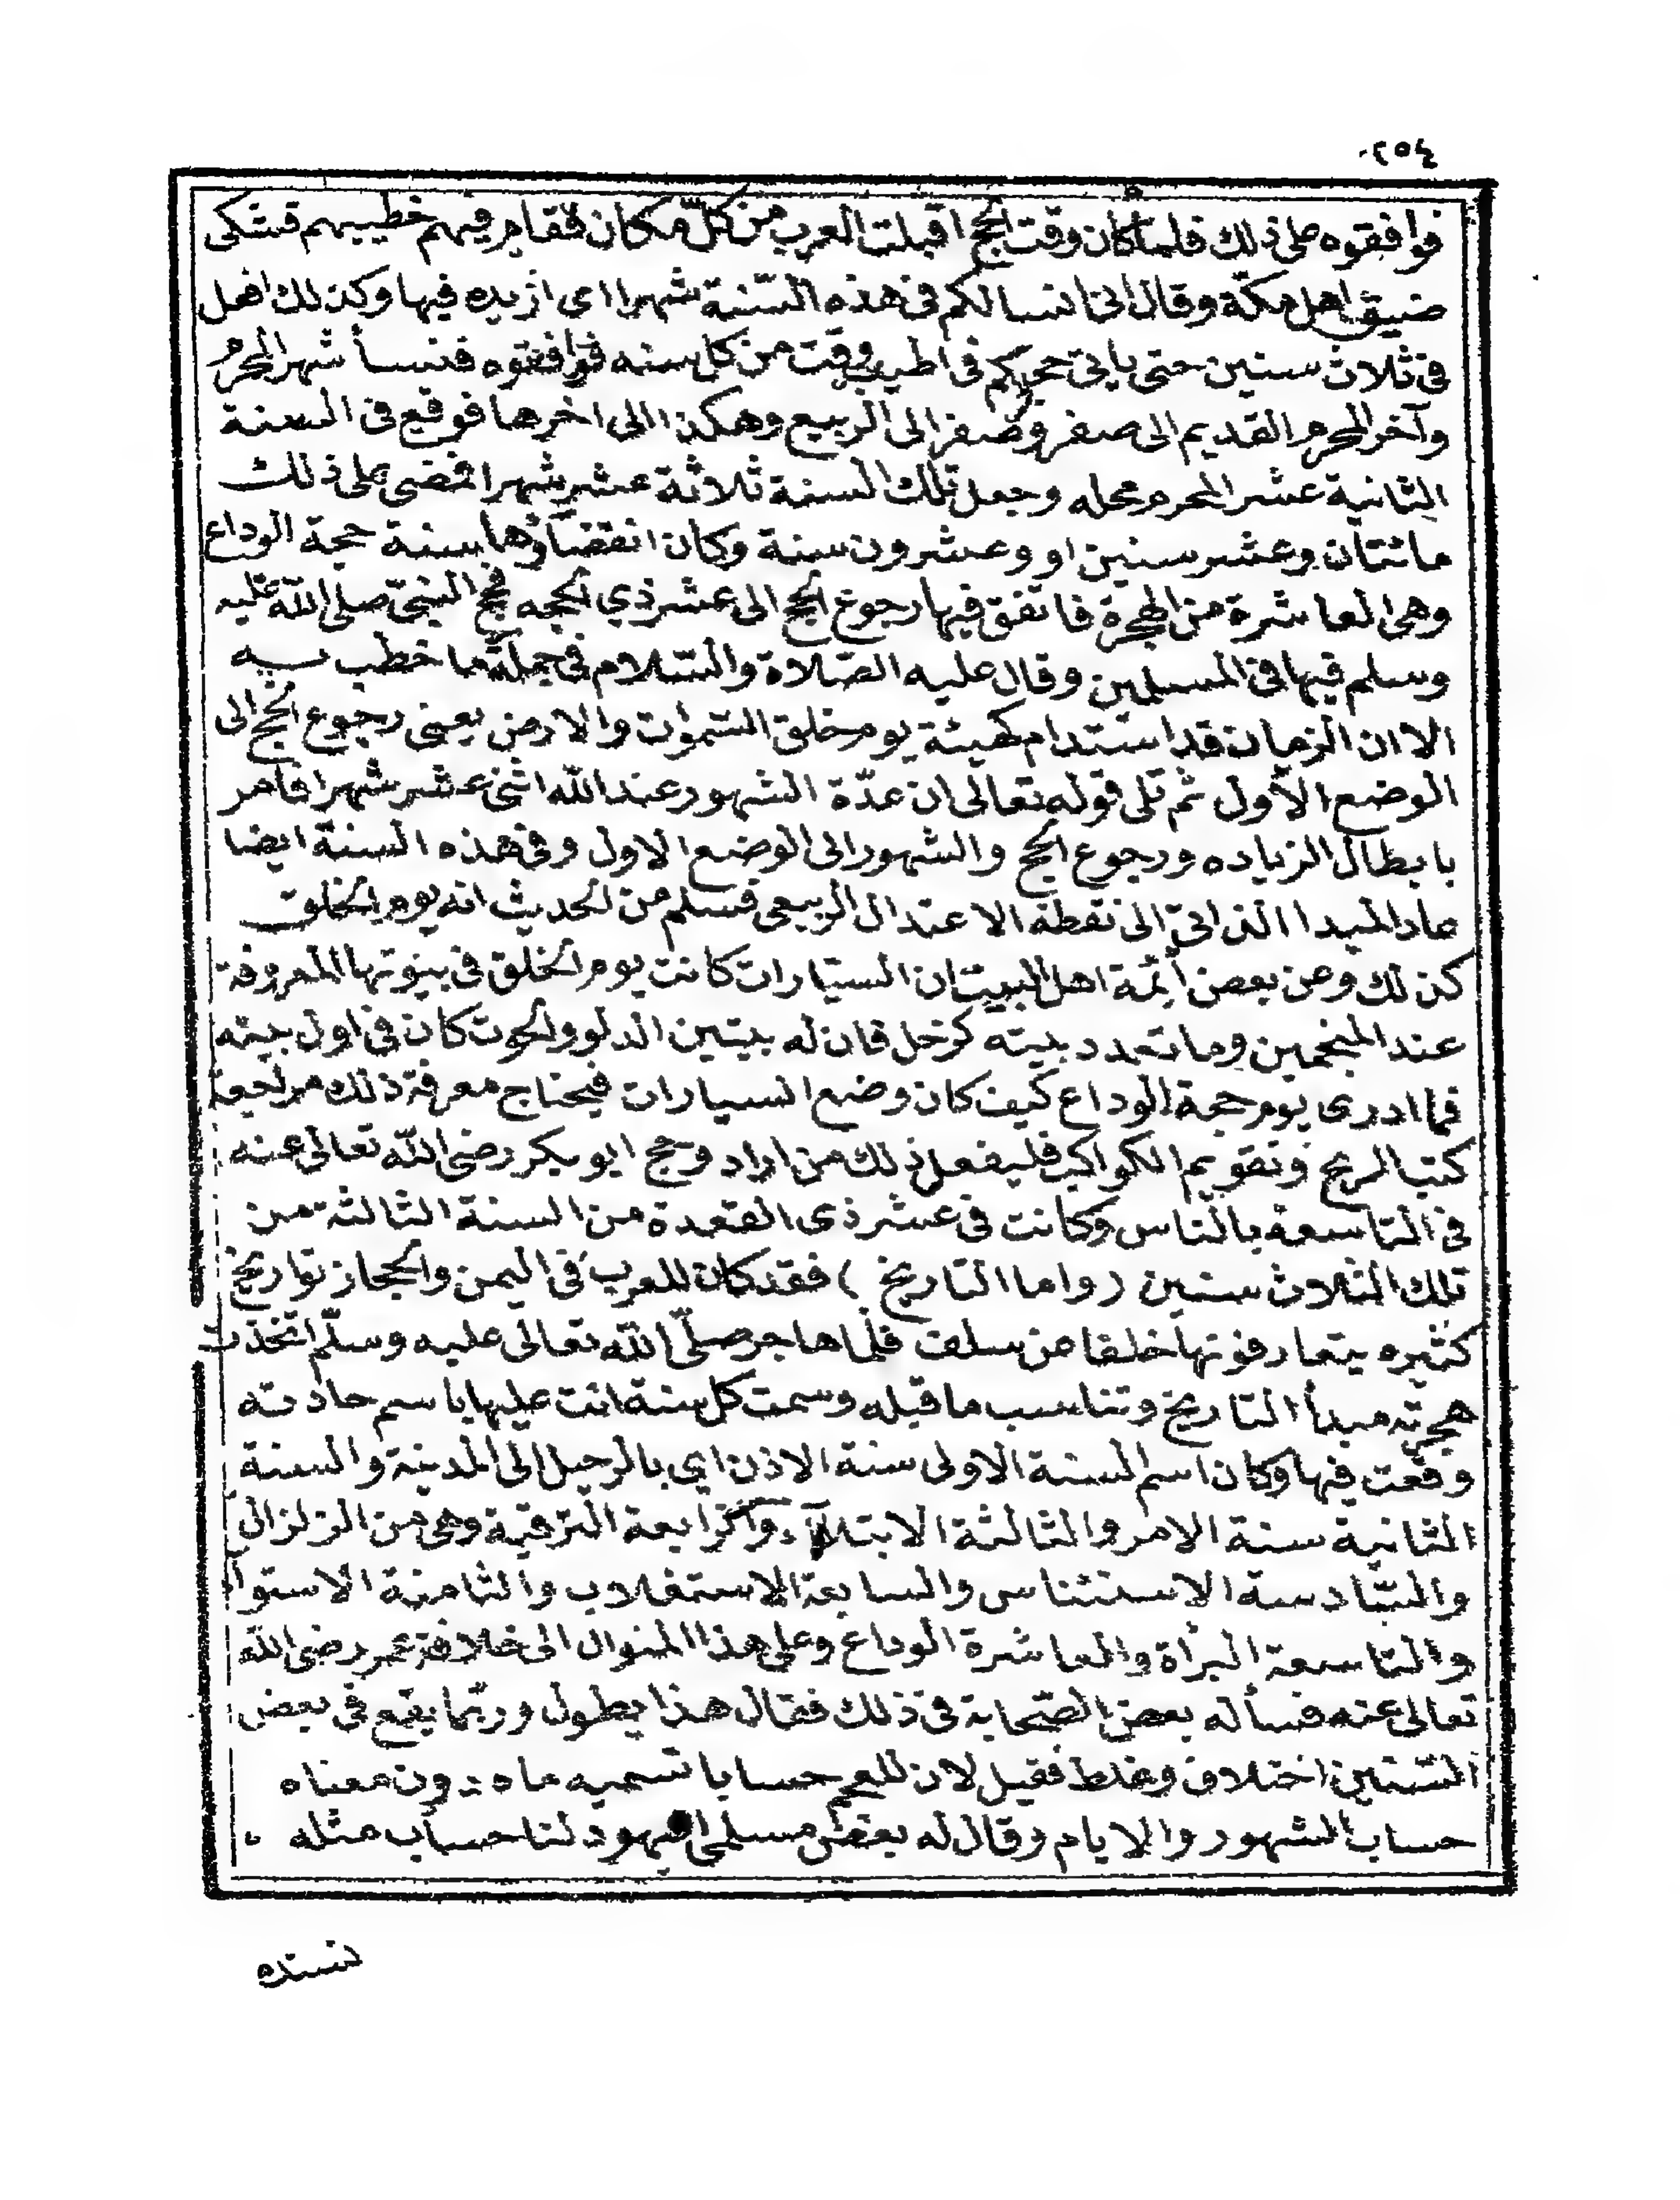 ٢٥٤
فوافقوه على ذلك فلما كان وقت الحج اقبلت العرب من كلّ مكان فقام فيهم خطيبهم فشكى
ضيق اهل مكة وقال انى انسا لكم فى هذه السّنة شهرا اى ازيده فيها وكذلك افعل
فى ثلاث سنين حتى ياتى حجكم فى اطيب وقت من كل سنه فوافقوه فنسأ شهر المحرم
وآخر المحرم القديم الى صفر وصفر الى الربيع وهكذا الى اخرها فوقع فى السنة
الثانية عشر المحرم محله وجعل تلك السنة ثلاثة عشر شهرا فمضى على ذلك
مائتان وعشر سنين او وعشرون سنة وكان انقضاؤها سنة حجة الوداع
وهى العاشرة من الهجرة فاتفق فيها رجوع الحج الى عشر ذي الحجه فحج النبىّ صلى الله عليه
وسلم فيها فى المسلمين وقال عليه الصّلاة والسّلام فى جملة ما خطب به
الا ان الزمان قد استدام كهيئة يوم خلق السّموٰت والارض يعنى رجوع الحج الى
الوضع الاول ثم تلى قوله تعالى ان عدّة الشهور عند الله اثنى عشر شهرا فامر
بابطال الزياده ورجوع الحج والشهور الى الوضع الاول وفى هذه السنة ايضا
عاد المبدا الذاتىّ الى نقطة الاعتدال الربيعى فسلم من الحديث انه يوم الخلق
كذلك وعن بعض أيمة اهل البيت ان السيّارات كانت يوم الخلق فى بيوتها المعروفة
عند المنجمين وما تعدد بيته كزحل فان له بيتين الدلو والحوت كان فى اول بيته
فما ادرى يوم حجة الوداع كيف كان وضع السيارات فيحتاج معرفة ذلك مراجعة
كتب الزيج وتقويم الكواكب فليفعل ذلك من اراد وحج ابو بكر رضى الله تعالى عنه
فى التاسعة بالنّاس وكانت فى عشر ذى القعدة من السنة الثالثة من
تلك الثلاث سنين (واما التاريخ) فقد كان للعرب فى اليمن والحجاز تواريخ
كثيره يتعارفونها خلفا عن سلف فلما هاجر صلّى الله تعالى عليه وسلّم اتخذت
هجرته مبدأ التاريخ وتناسب ما قبله وسمت كل سنة اتت عليها باسم حادثه
وقعت فيها وكان اسم السنة الاولى سنة الاذن اي بالرحيل الى المدينة والسنة
الثانية سنة الامر والثالثة الابتلآء والرابعة الترقية وهى من الزلزال
والسّادسة الاستئناس والسابعة الاستغلاب والثامنة الاستوا
والتاسعة البرأة والعاشرة الوداع وعلى هذا المنوال الى خلافة عمر رضى الله
تعالى عنه فسأله بعض الصّحابة فى ذلك فقال هذا يطول وربّما يقع فى بعض
السّنين اختلاف وغلط فقيل لان للعجم حسابا تسميه ماه دون معناه
حساب الشهور والايام وقال له بعض مسلمى اليهود لنا حساب مثله
نسنده